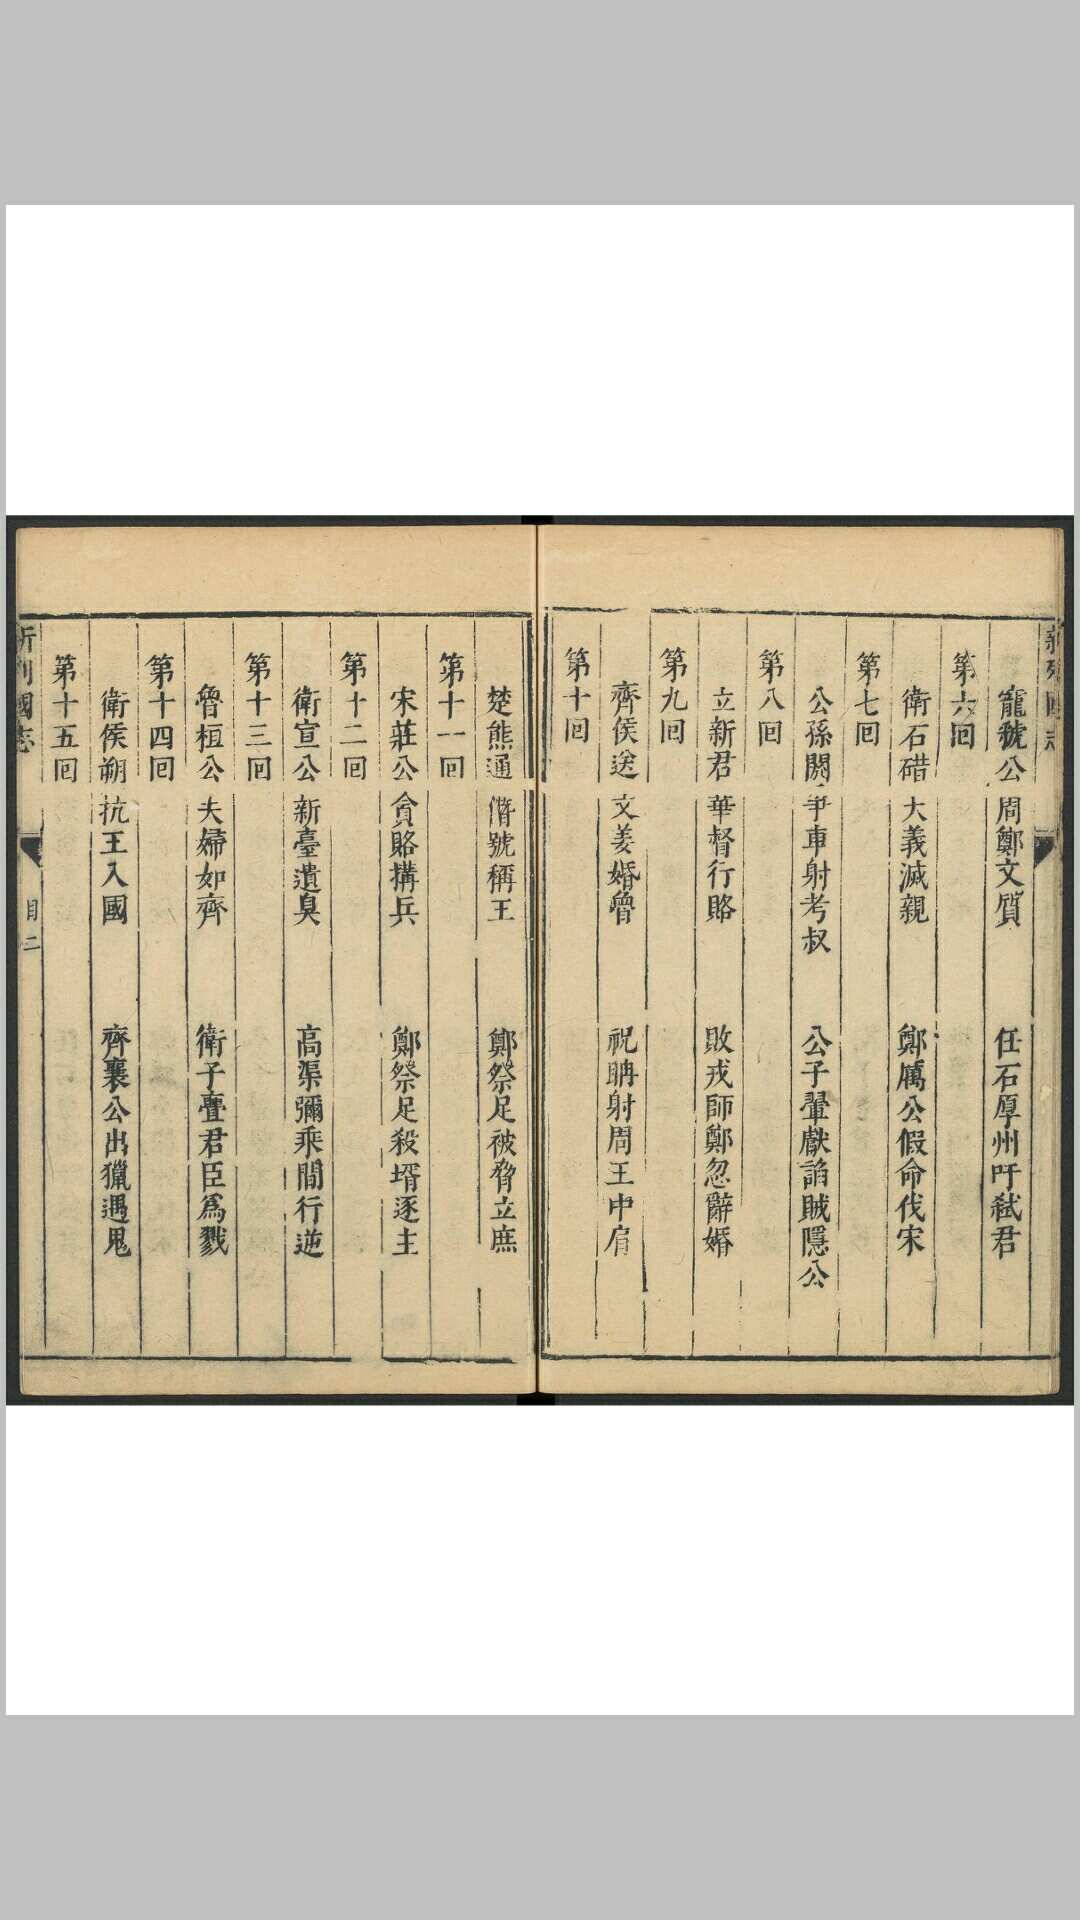 寵虢公周鄭文質　任石厚州吁弒君
第六回
衛石碏大義滅親　鄭厲公假命伐宋
第七回
公孫閼爭車射考叔　公子翬獻諂賊隱公
第八回
立新君華督行賂　敗戎師鄭忽辭婚
第九回
齊侯送文姜婚魯　祝聃射周王中肩
第十回
楚熊通僭號稱王　鄭祭足被脅立庶
第十一回
宋莊公貪賂搆兵　鄭祭足殺壻逐主
第十二回
衛宣公新臺遺臭　高渠彌乘間行逆
第十三回
魯桓公夫婦如齊　衛子亹君臣爲戮
第十四回
衛侯朔抗王入國　齊襄公出獵遇鬼
第十五回
新列國志
目二